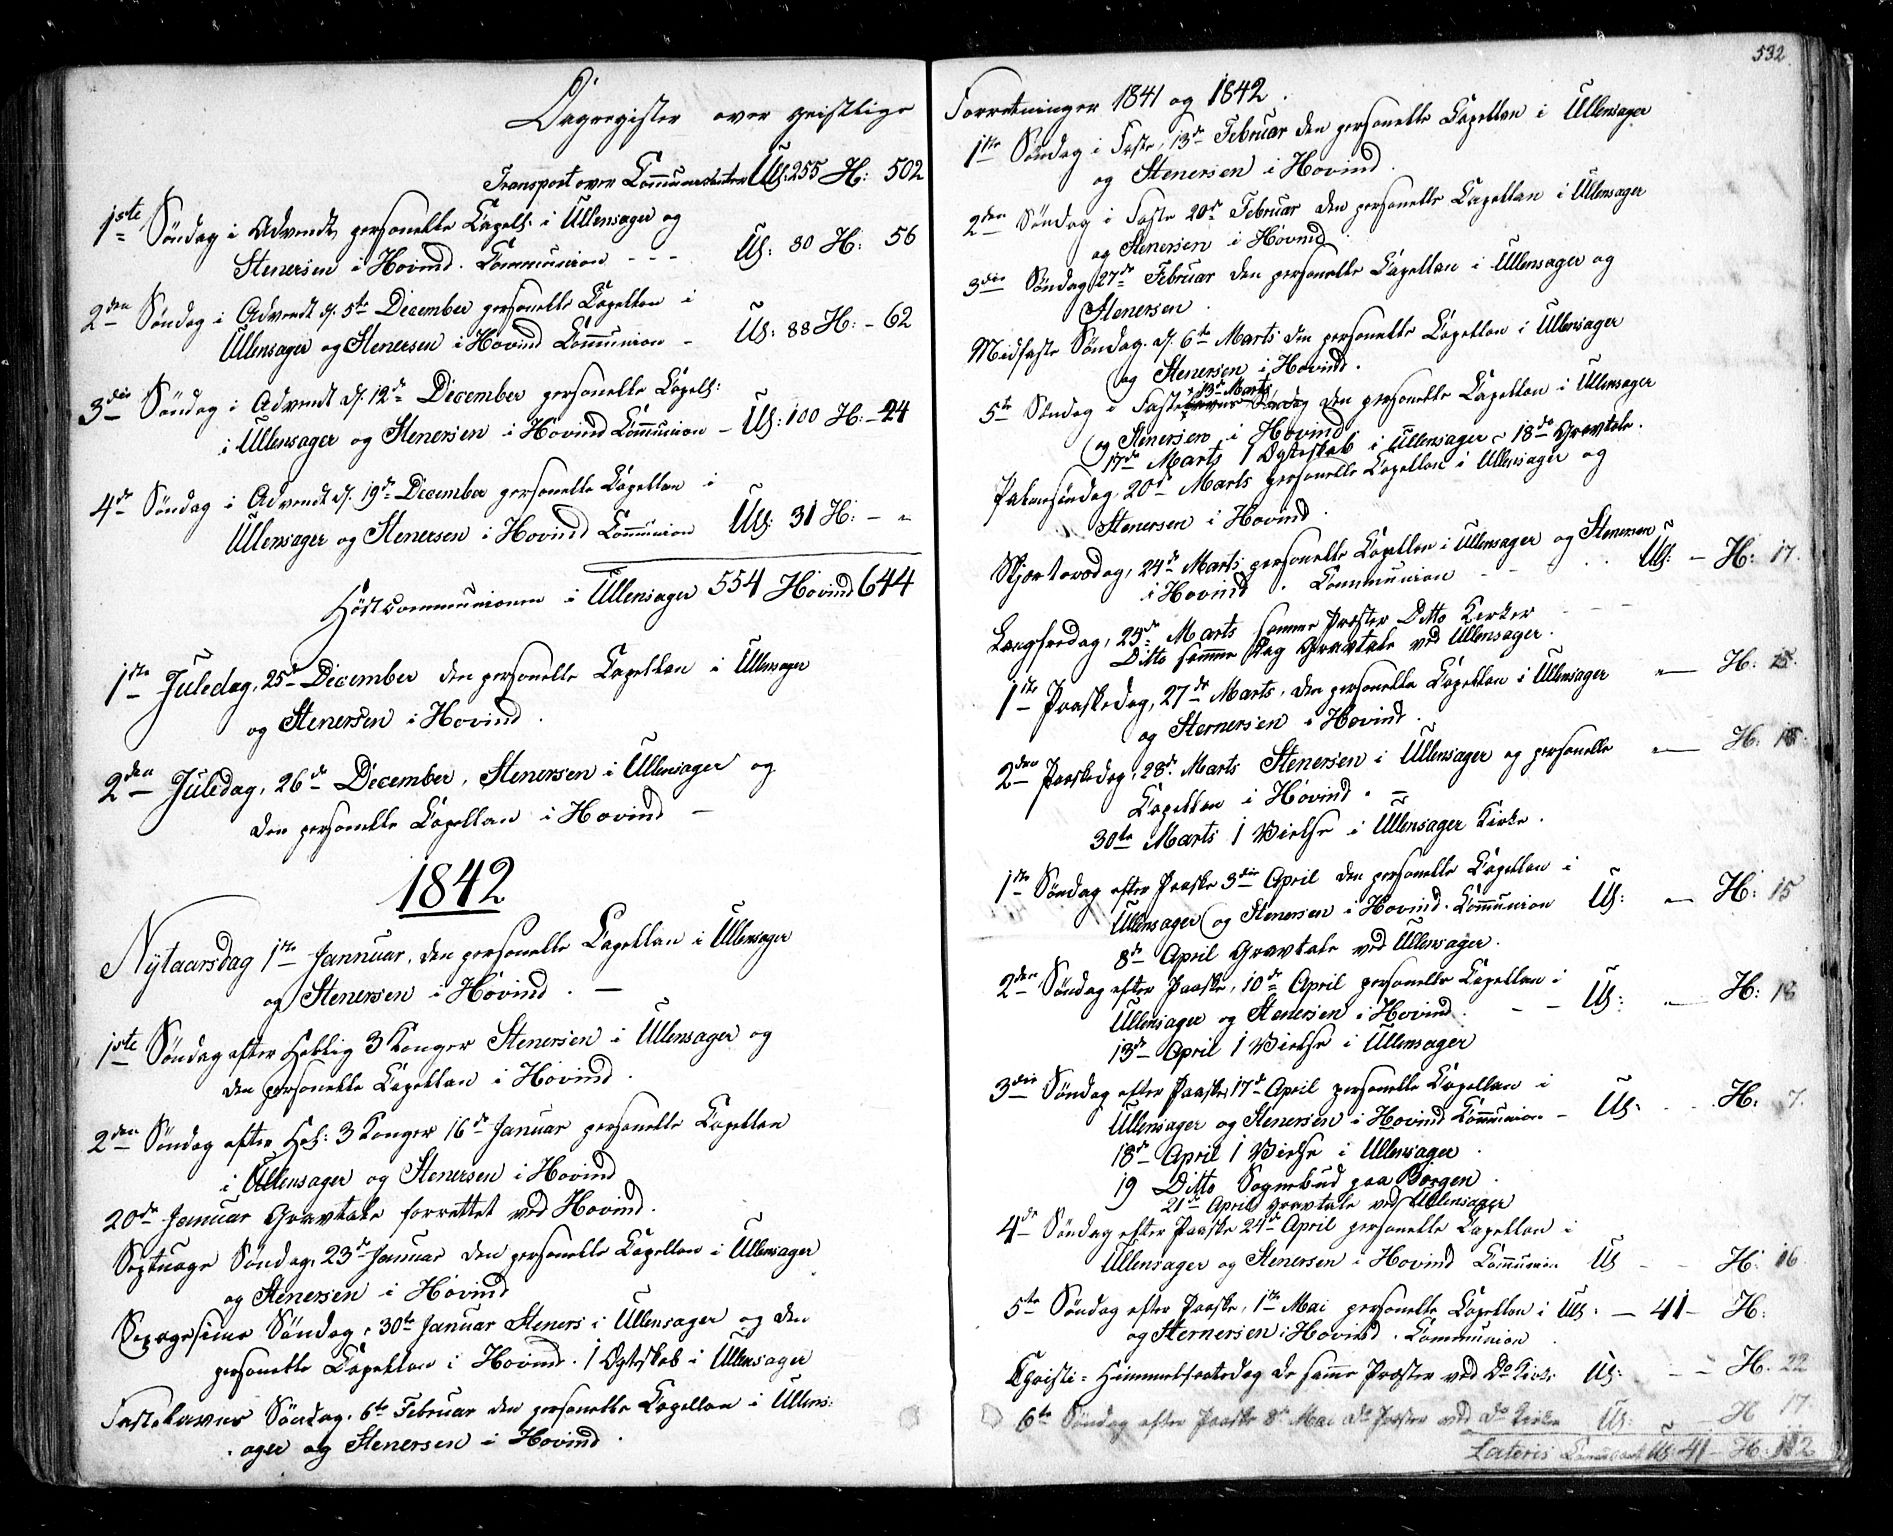 Dagregister over geistlige
Transport over Communicanter Ull: 255 H: 502
1ste Søndag i Advendt, personelle Capell: i Ullensager og
Stenersen i Hovind. Communion - - - Ull: 80 H: 56
2den Søndag i Advendt d. 5te December personelle Capellan i
Ullensager og Stenersen i Hovind Communion - Ull: 88 H: - 62
3die Søndag i Advendt d. 12te December personelle Capell:
i Ullensager og Stenersen i Hovind Communion - Ull: 100 H: - 24
4de Søndag i Advendt d. 19de December personelle Capellan i
Ullensager og Stenersen i Hovind Communion Ull: 31 H: - "
Höstcommunionen i Ullensager 554 Hovind 644
1ste Juledag, 25de December den personelle Capellan i Ullensager
og Stenersen i Hovind.
2den Juledag, 26de December, Stenersen i Ullensager og
den personelle Capellan i Hovind -
1842
Nytaarsdag 1ste Jannuar, den personelle Capellan i Ullensager
og Stenersen i Hovind. -
1ste Søndag efter Hellig 3 Konger Stenersen i Ullensager og
den personelle Capellan i Hovind.
2den Søndag efter Hel: 3 Konger 16de Januar personelle Capellan
i Ullensager og Stenersen i Hovind
20de Januar Gravtale forrettet ved Hovind.
Septuage Søndag, 23de Januar den personelle Capellan i Ullensager
og Stenersen i Hovind
Sexagesima Søndag, 30te Januar Steners i Ullensager og den
personelle Capellan i Hovind. 1 Ægtskab i Ullensager
Fastelavns Søndag. 6te Februar den personelle Capellan i Ullens:
ager og Stenersen i Hovind.
532.
Forretninger 1841 og 1842.
1ste Søndag i Faste, 13de Februar den personelle Capellan i Ullensager
og Stenersen i Hovind.
2den Søndag i Faste 20de Februar den personelle Capellan i Ullensager
og Stenersen i Hovind.
3die Søndag 27de Februar den personelle Capellan i Ullensager og
Stenersen.
Midfaste Søndag. d. 6te Marts den personelle Capellan i Ullensager
og Stenersen i Hovind.
13de Marts
5te Søndag i Faste den personelle Capellan i Ullensager
og Stenersen i Hovind.
17de Marts 1 Ægteskab i Ullensager - 18de Gravtale.
Palmesøndag, 20de Marts personelle Capellan i Ullensager og
Stenersen i Hovind.
Skjærtorsdag, 24de Marts personelle Capellan i Ullensager og Stenersen
i Hovind. Communion - - - Ull: - H: 17.
Langfredag, 25de Marts samme Præster Ditto Kirker
Ditto samme Dag Gravtale ved Ullensager.
1ste Paaskedag, 27de Marts, den personelle Capellan i Ullensager " - H: 15.
og Sternersen i Hovind.
2den Paaskedag, 28de Marts Stenersen i Ullensager og personelle " - H: 18.
Capellan i Hovind. -
30te Marts 1 Vielse i Ullensager Kirke.
1ste Søndag efter Paaske 3die April den personelle Capellan i
Ullensager og Stenersen i Hovind. Communion Ull: - H: 15
8de April Gravtale ved Ullensager.
2den Søndag efter Paaske, 10de April personelle Capellan i
Ullensager og Stenersen i Hovind. - - Ull: - H: 18
13de April 1 Vielse i Ullensager
3die Søndag efter Paaske, 17de April personelle Capellan i
Ullensager og Stenersen i Hovind Communion - Ull: - - H: 7.
18de April 1 Vielse i Ullensager.
19 Ditto Sognebud paa Borgen.
21de April Gravtale ved Ullensager
4de Søndag efter Paaske 24de April personelle Capellan i
Ullensager og Stenersen i Hovind Communion Ull - - H: 16.
5te Søndag efter Paaske, 1ste Mai personelle Capellan i Ull: - 41 - H:
og Sternersen i Hovind. Communion.
Christi = Himmelfartsdag de samme Præster ved Do Kirk: Ull: - - H. 22
6te Søndag efter Paaske 8de Mai do Præster ved do Kirker Ull: - H 17.
Lateris Communicant Ull: 41 - H: 112